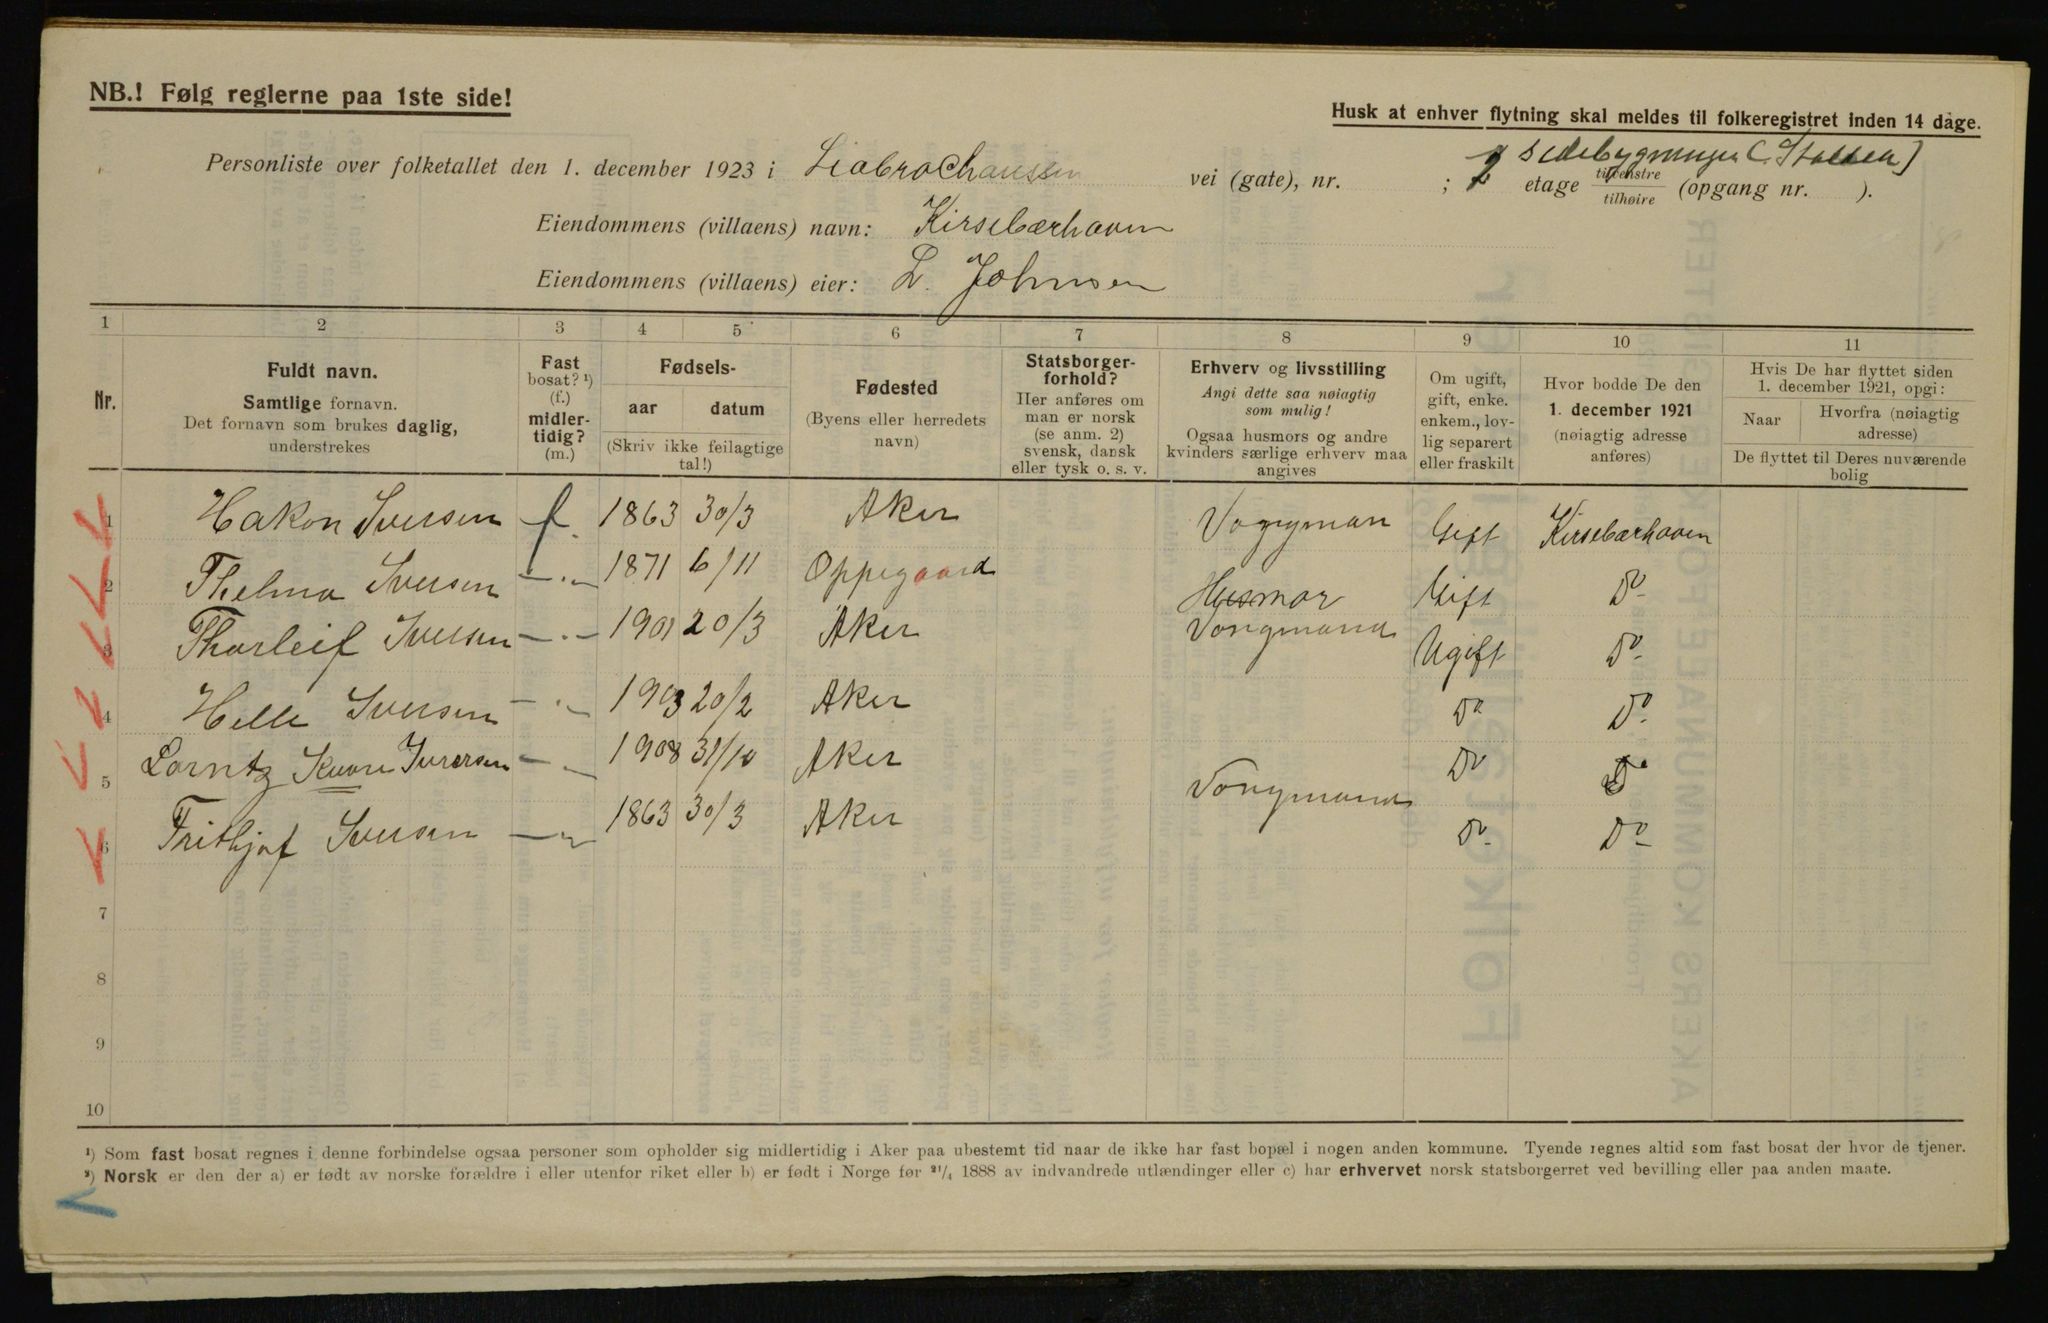 NB.! Følg reglerne paa 1ste side!
Husk at enhver flytning skal meldes til folkeregistret inden 14 dage.
sidebygningen (Stallen)
Personliste over folketallet den 1. december 1923 i LiabroChaussen vei (gate), nr. ; 2 etage tilvenstre tilhøire (opgang nr. ).
Eiendommens (villaens) navn: Kirsebærhaven
Eiendommens (villaens) eier: L. Johnsen
1 2 3 4 5 6 7 8 9 10 11
Nr.
Fuldt navn.
Samtlige fornavn.
Det fornavn som brukes daglig,
understrekes
Fast
bosat? ¹)
(f.)
midler-
tidig?
(m.)
Fødsels-
aar datum
(Skriv ikke feilagtige
tal!)
Fødested
(Byens eller herredets
navn)
Statsborger-
forhold?
Her anføres om
man er norsk
(se anm. 2)
svensk, dansk
eller tysk o. s. v.
Erhverv og livsstilling
Angi dette saa nøiagtig
som mulig!
Ogsaa husmors og andre
kvinders særlige erhverv maa
angives
Om ugift,
gift, enke.
enkem., lov-
lig separert
eller fraskilt
Hvor bodde De den
1. december 1921
(nøiagtig adresse
anføres)
Hvis De har flyttet siden
1. december 1921, opgi:
Naar
Hvorfra (nøiagtig
adresse)
De flyttet til Deres nuværende
bolig
1 Hakon Iversen f. 1863 30/3 Aker Vognman Gift Kirsebærhaven
2 Thelma Iversen —„— 1871 6/11 Oppegaard Husmor Gift Do
3 Thorleif Iversen —„— 1901 20/3 Aker Vongmand Ugift Do
4 Helle Iversen —„— 1903 20/2 Aker Do Do
5 Lorntz Kaare Iversen —„— 1908 31/10 Aker Do Do
6 Frithjof Iversen —„— 1863 30/3 Aker Vongmand Do Do
7
8
9
10
¹) Som fast bosat regnes i denne forbindelse ogsaa personer som opholder sig midlertidig i Aker paa ubestemt tid naar de ikke har fast bopæl i nogen anden kommune. Tyende regnes altid som fast bosat der hvor de tjener.
²) Norsk er den der a) er født av norske forældre i eller utenfor riket eller b) er født i Norge før ²¹/₄ 1888 av indvandrede utlændinger eller c) har erhvervet norsk statsborgerret ved bevilling eller paa anden maate.